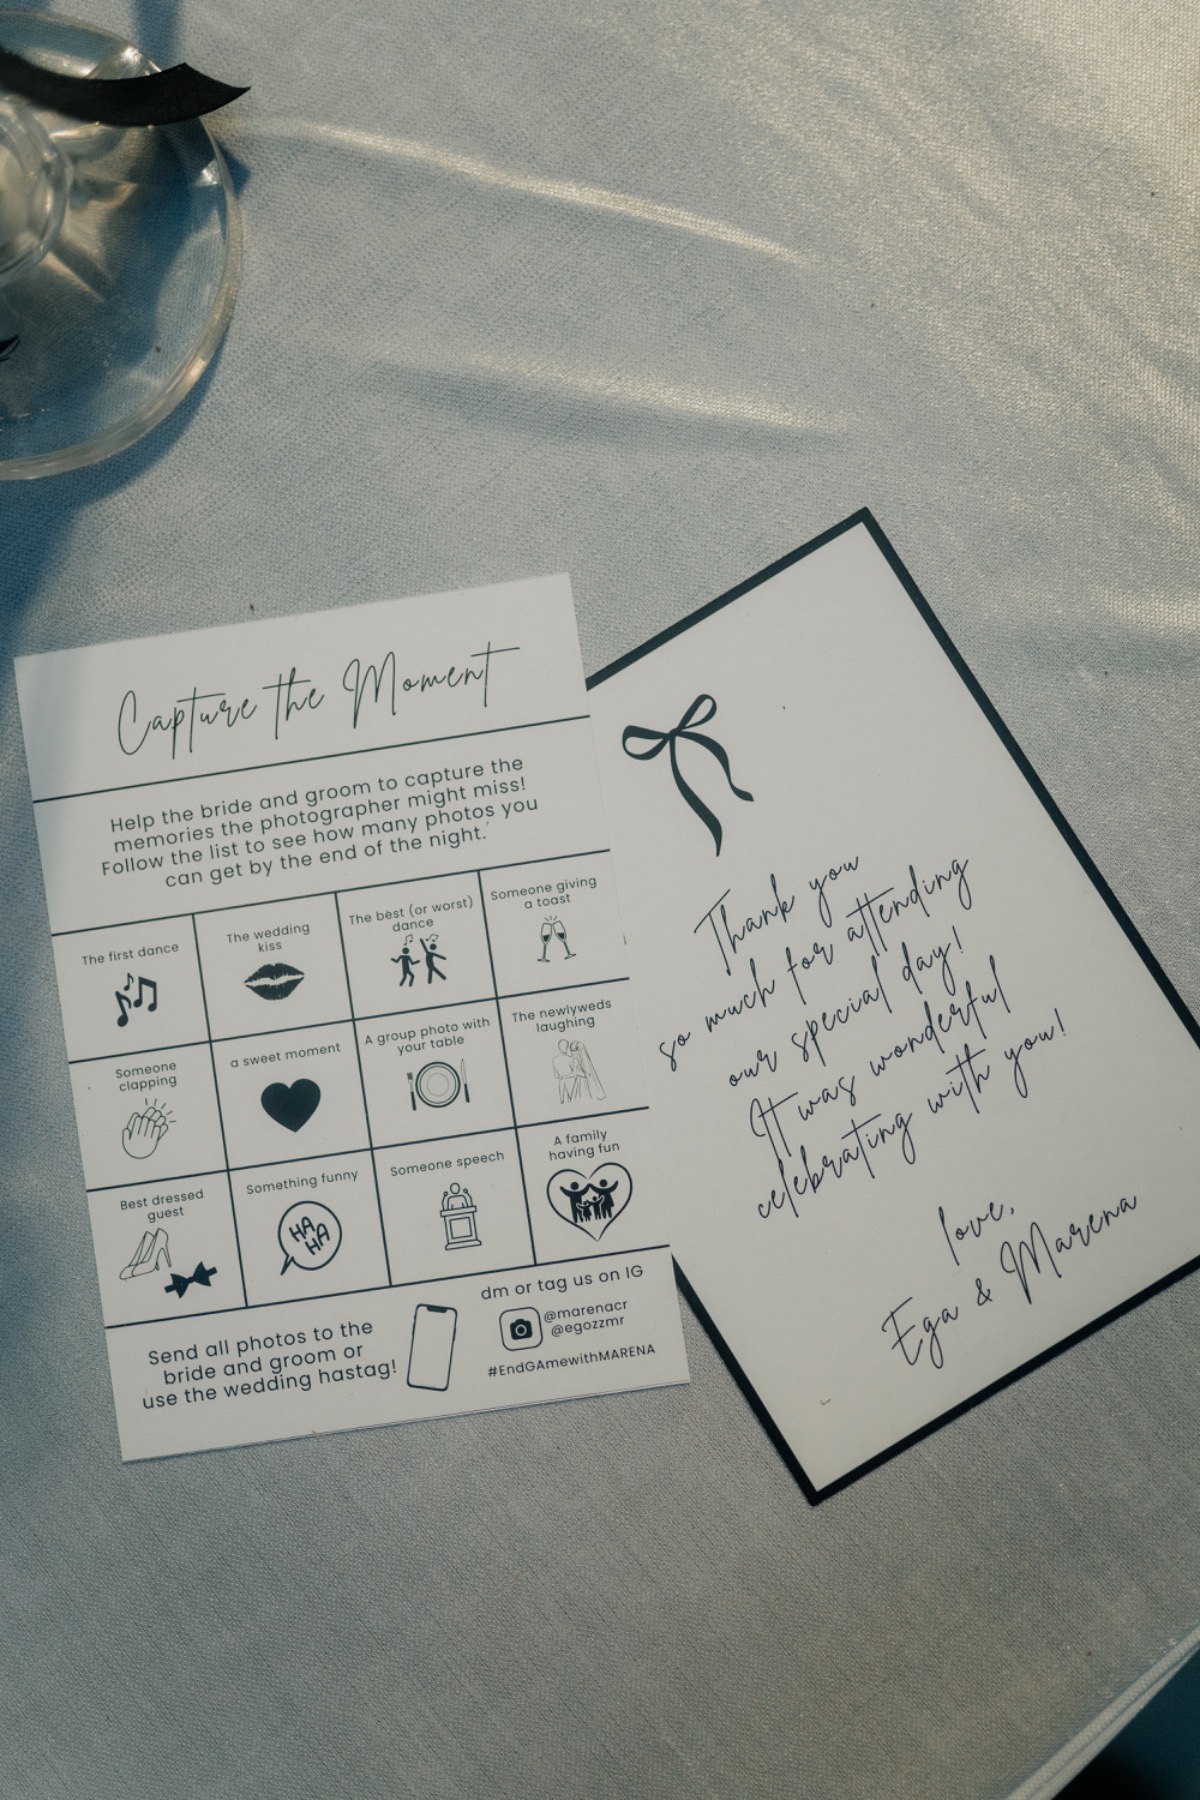 Capture the Moment
Help the bride and groom to capture the
memories the photographer might miss!
Follow the list to see how many photos you
can get by the end of the night.
The first dance
The wedding
kiss
The best (or worst)
dance
Someone giving
a toast
Someone
clapping
a sweet moment
A group photo with
your table
The newlyweds
laughing
Best dressed
guest
Something funny
HA
HA
Someone speech
A family
having fun
Send all photos to the
bride and groom or
use the wedding hastag!
dm or tag us on IG
@marenacr
@egozzmr
#EndGAmewithMARENA
Thank you
so much for attending
our special day!
It was wonderful
celebrating with you!
love,
Ega & Marena